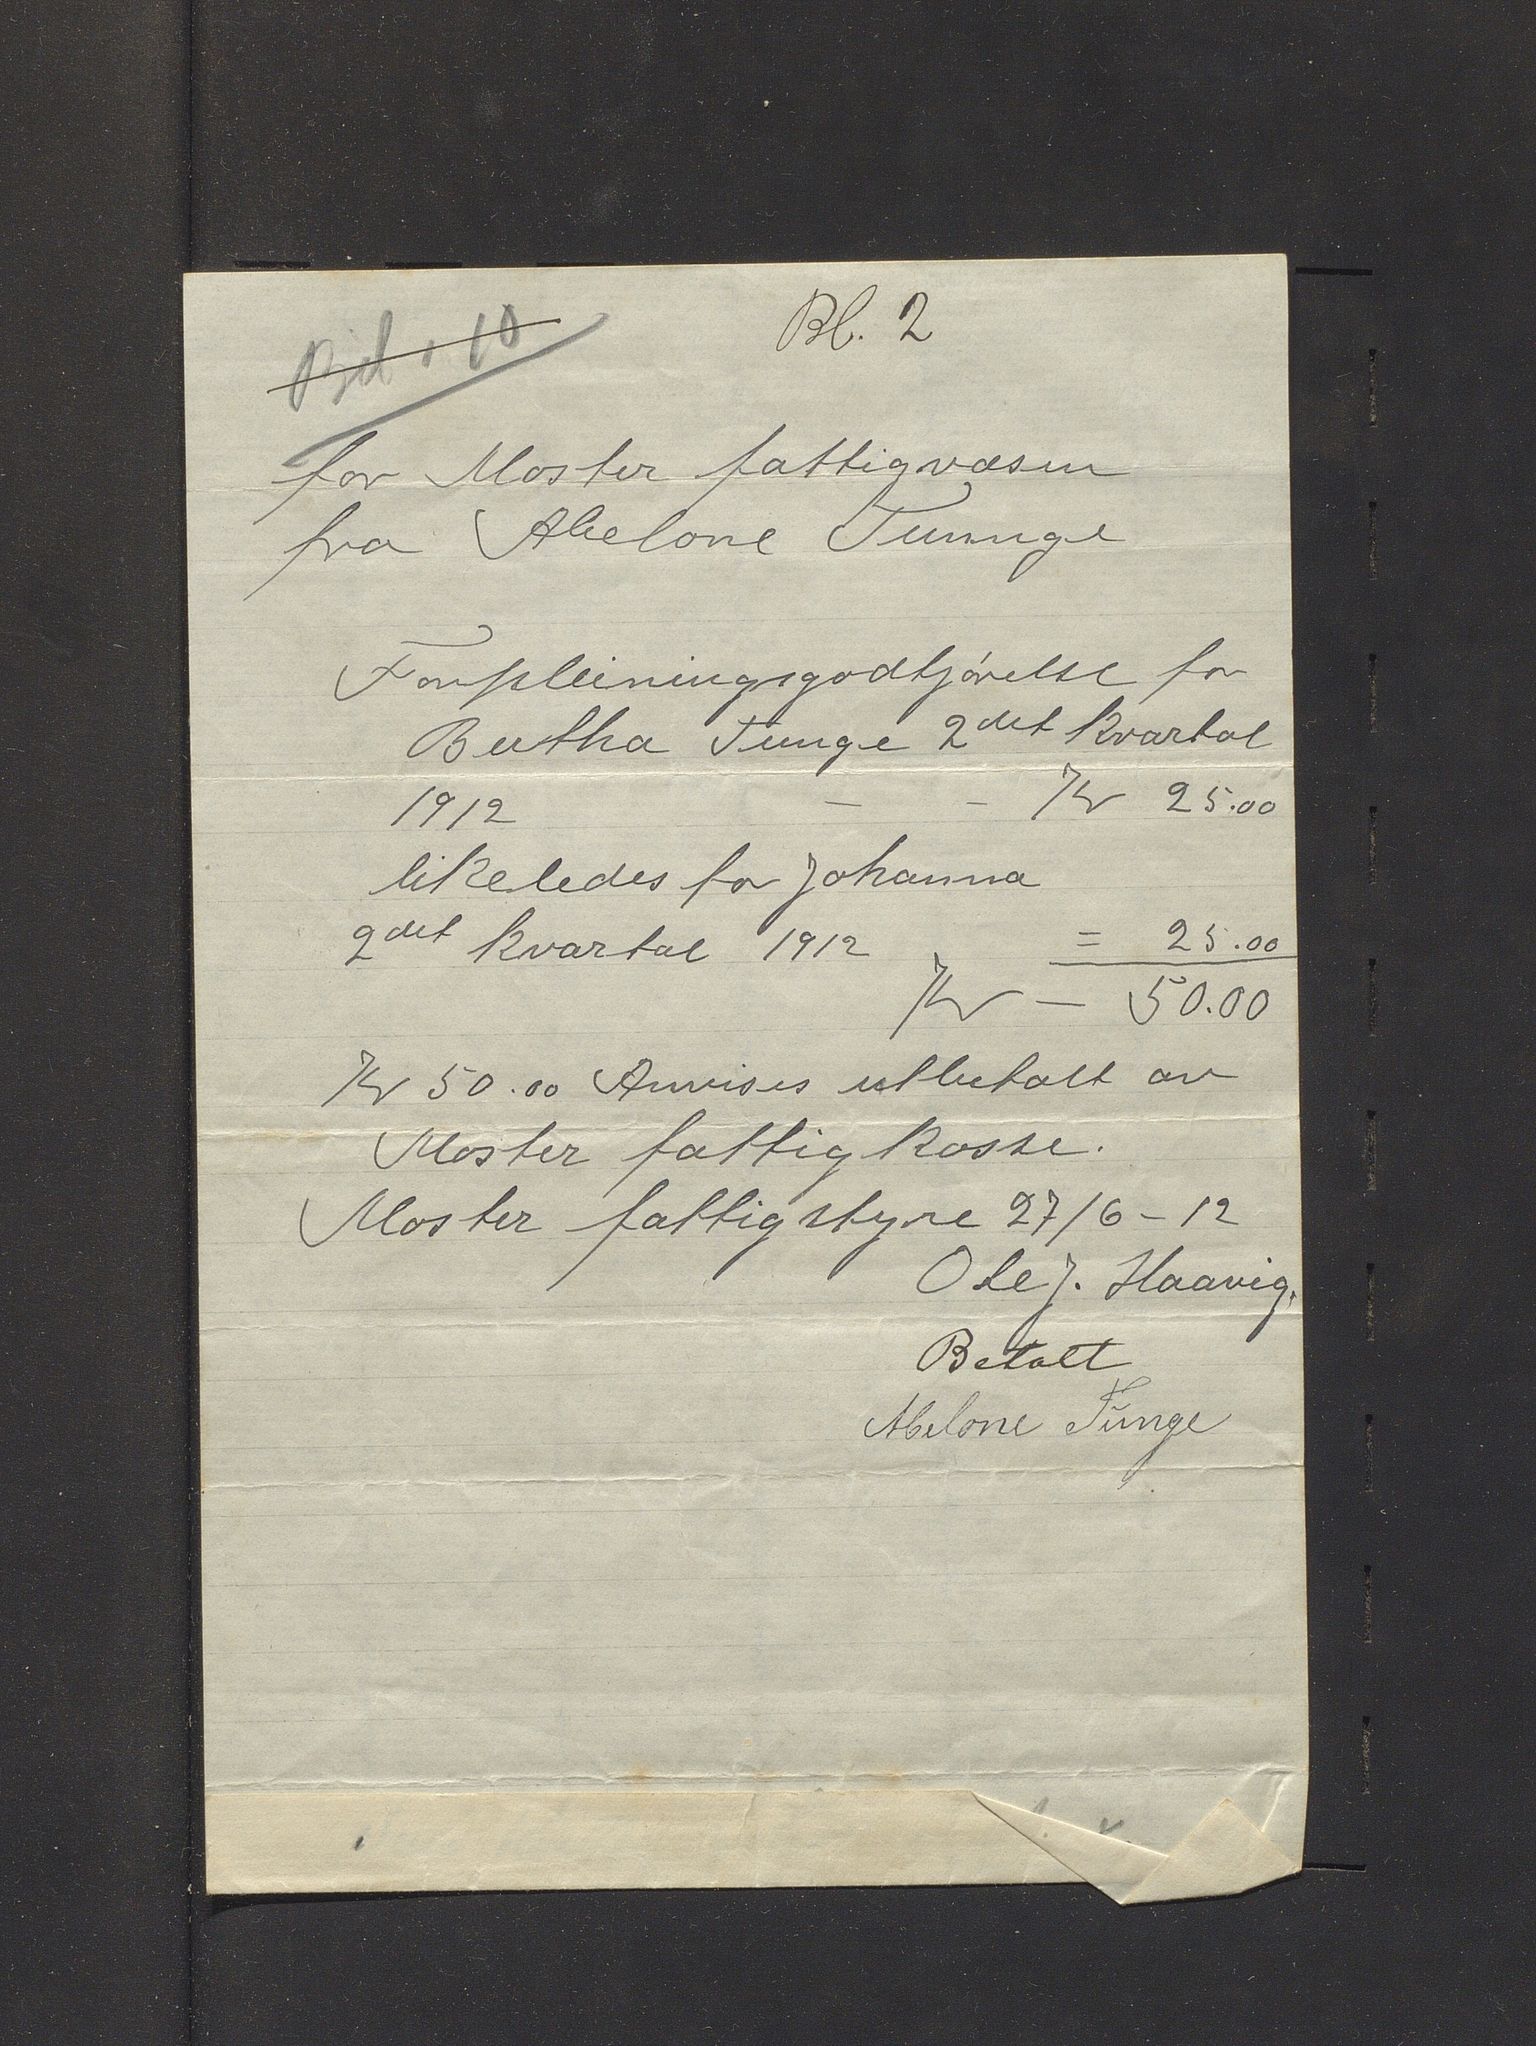 Bl. 2
Bil. 10
for Moster fattigvæsen
fra Abelone Tunnge
Forpleiningsgodtjørelse for
Bertha Tunge 2det kvartal
1912 - - Kr 25.00
likeledes for Johanna
2det kvartal 1912 = 25.00
Kr - 50.00
Kr 50.00 Anvises utbetalt av
Moster fattigkasse.
Moster fattigstyre 27/6-12
Ole J. Haavig.
Betalt
Abelone Tunge